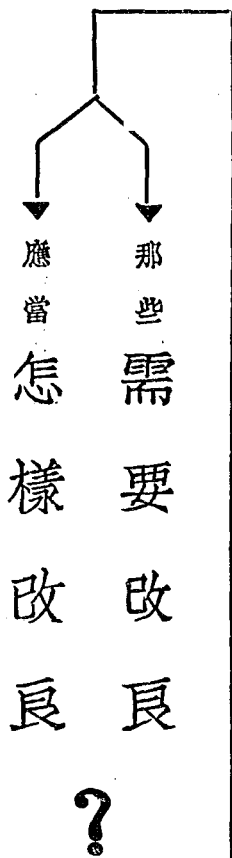 那些需要改良
應當怎樣改良
?